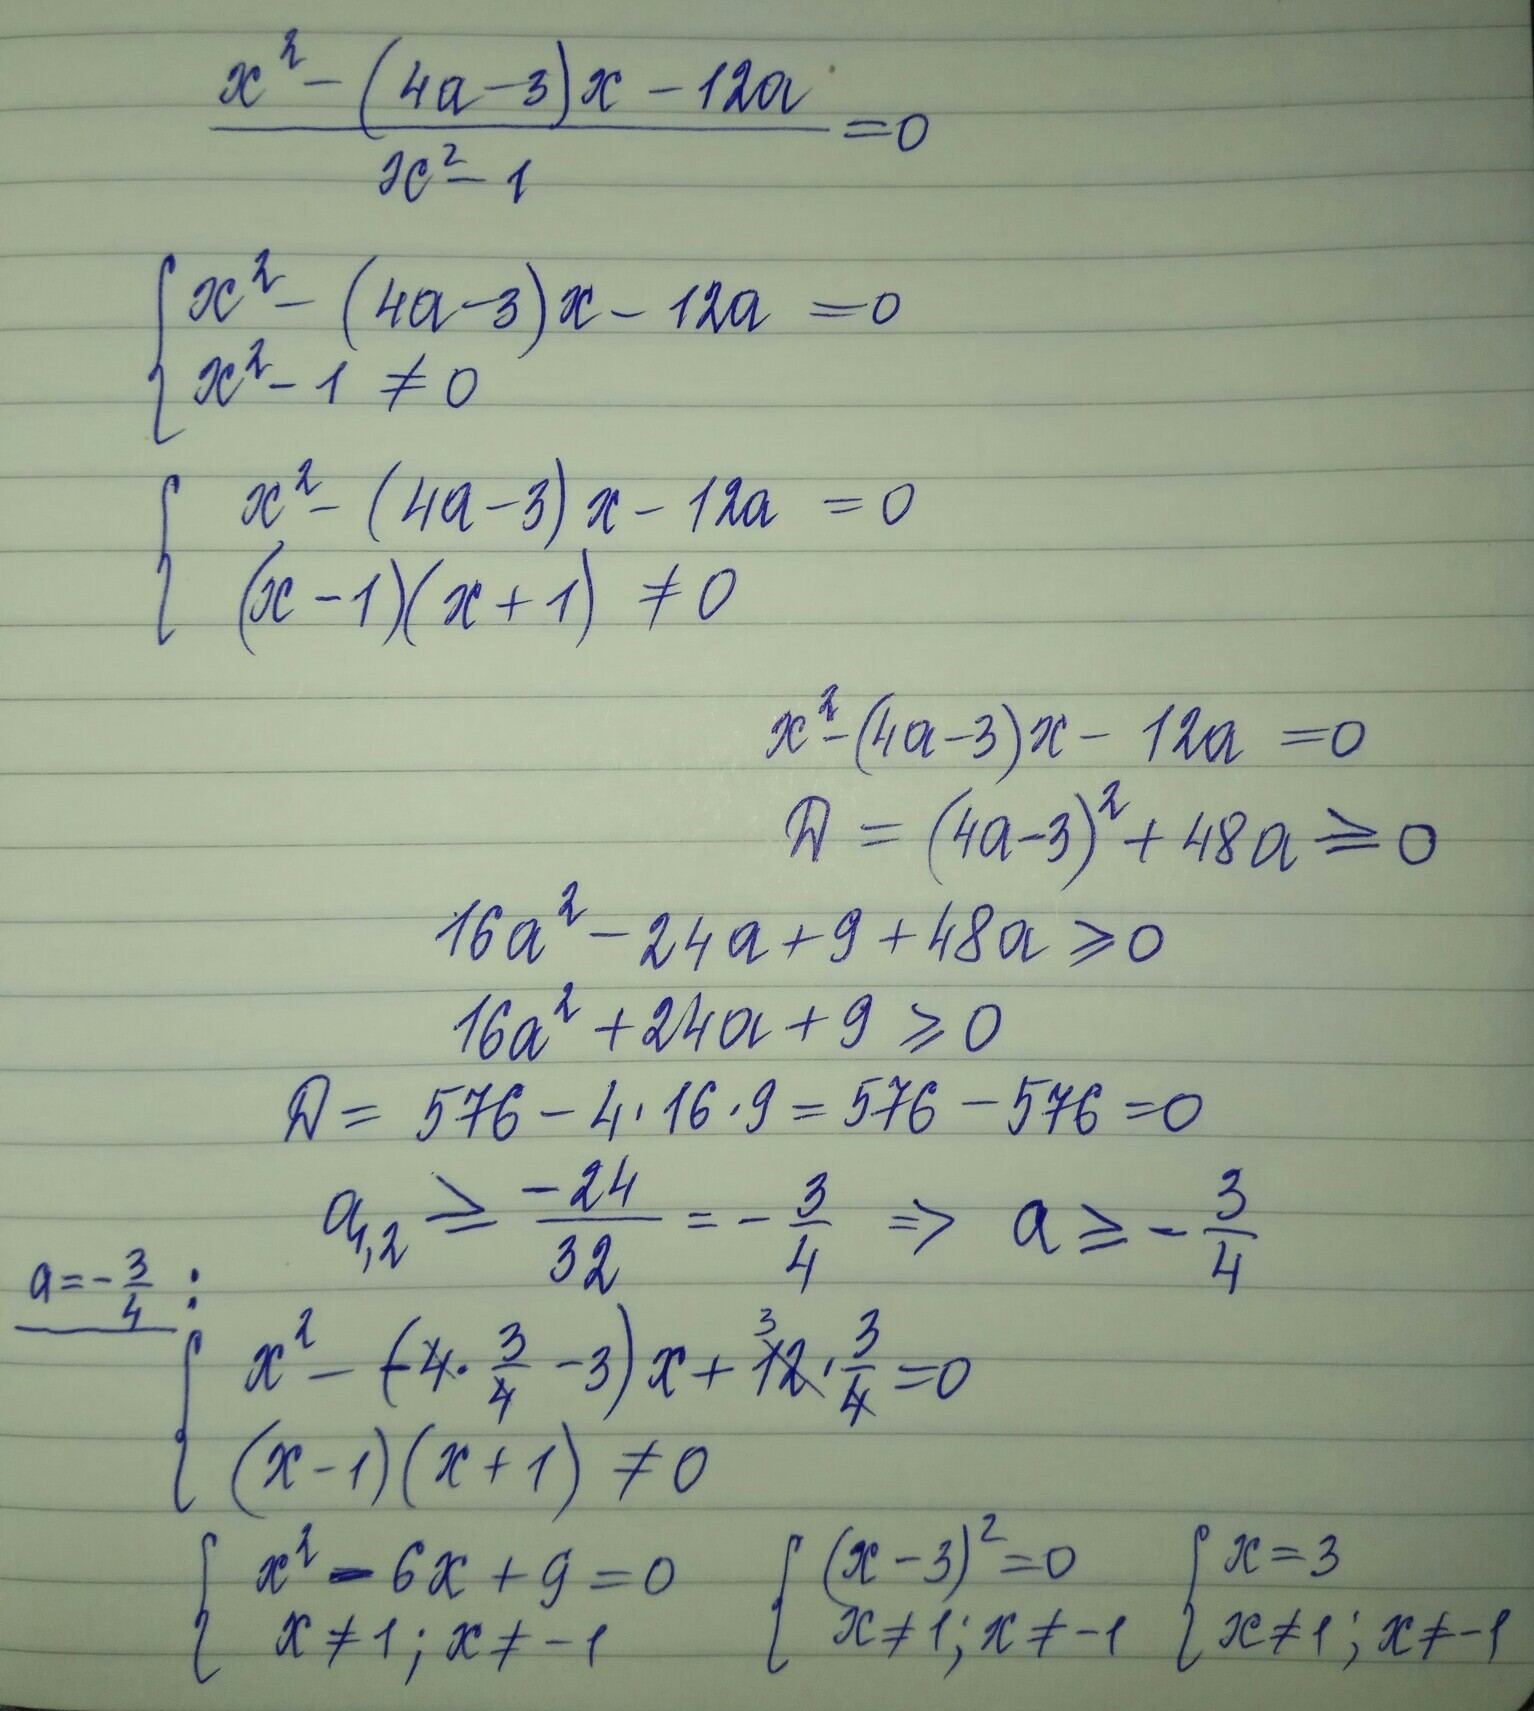 (x² - (4a-3)x - 12a) / (x² - 1) = 0
{ x² - (4a-3)x - 12a = 0
x² - 1 ≠ 0
{ x² - (4a-3)x - 12a = 0
(x-1)(x+1) ≠ 0
x² - (4a-3)x - 12a = 0
D = (4a-3)² + 48a ≥ 0
16a² - 24a + 9 + 48a ≥ 0
16a² + 24a + 9 ≥ 0
D = 576 - 4·16·9 = 576 - 576 = 0
a₁,₂ ≥ -24/32 = -3/4 => a ≥ -3/4
a = -3/4 :
{ x² - (-4·3/4 - 3)x + 12·3/4 = 0
3
(x-1)(x+1) ≠ 0
{ x² - 6x + 9 = 0 { (x-3)² = 0 { x = 3
x ≠ 1; x ≠ -1 x ≠ 1; x ≠ -1 x ≠ 1; x ≠ -1